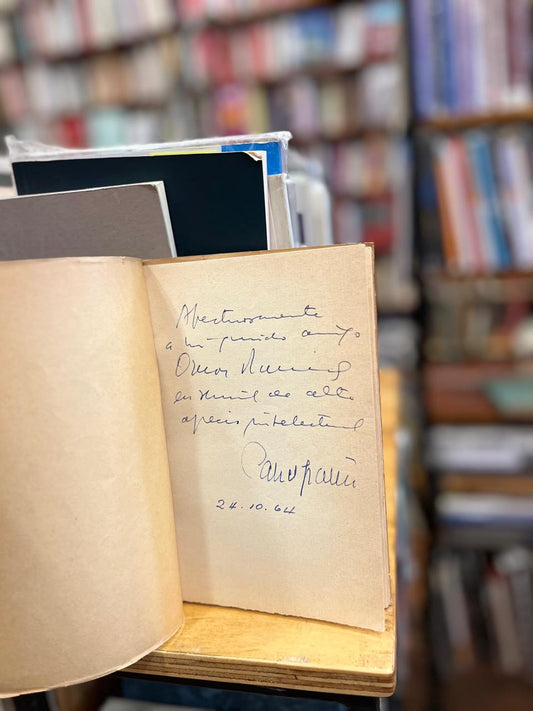 Afectuosamente
a mi querido amigo
Omar
en señal de alto
aprecio intelectual
24.10.64